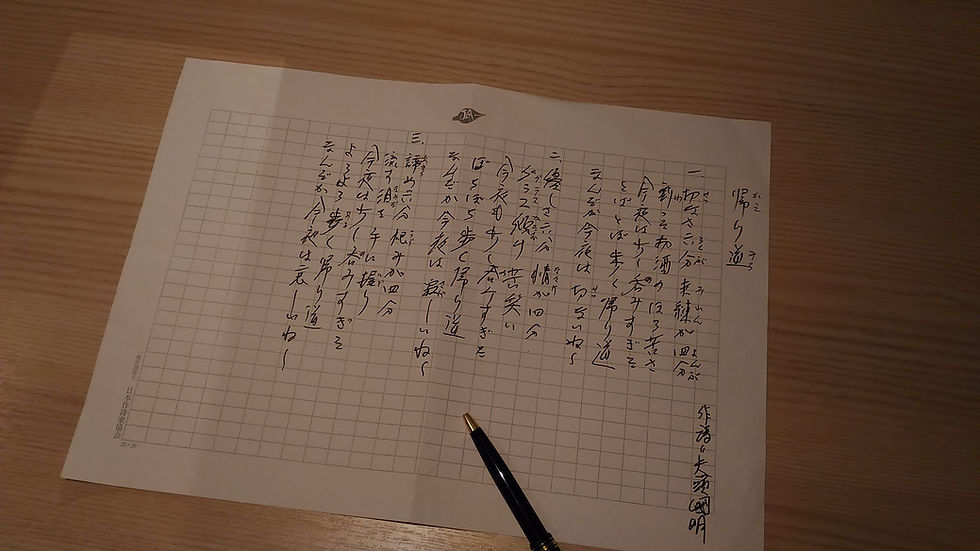 帰り道
作詩
一、切なさ六分 未練が四分
割ったお酒のほろ苦さ
今夜は少し呑みすぎた
とぼとぼ歩く帰り道
なんだか今夜は切ないね〜
二、優しさ六分 情が四分
苦笑い
今夜も少し呑みすぎた
ぼちぼち歩く帰り道
なんだか今夜は寂しいね〜
三、諦め六分 恨みが四分
流す涙を手に握り
今夜は少し呑みすぎた
よろよろ歩く帰り道
なんだか今夜は哀しいね〜
日本作詩家協会